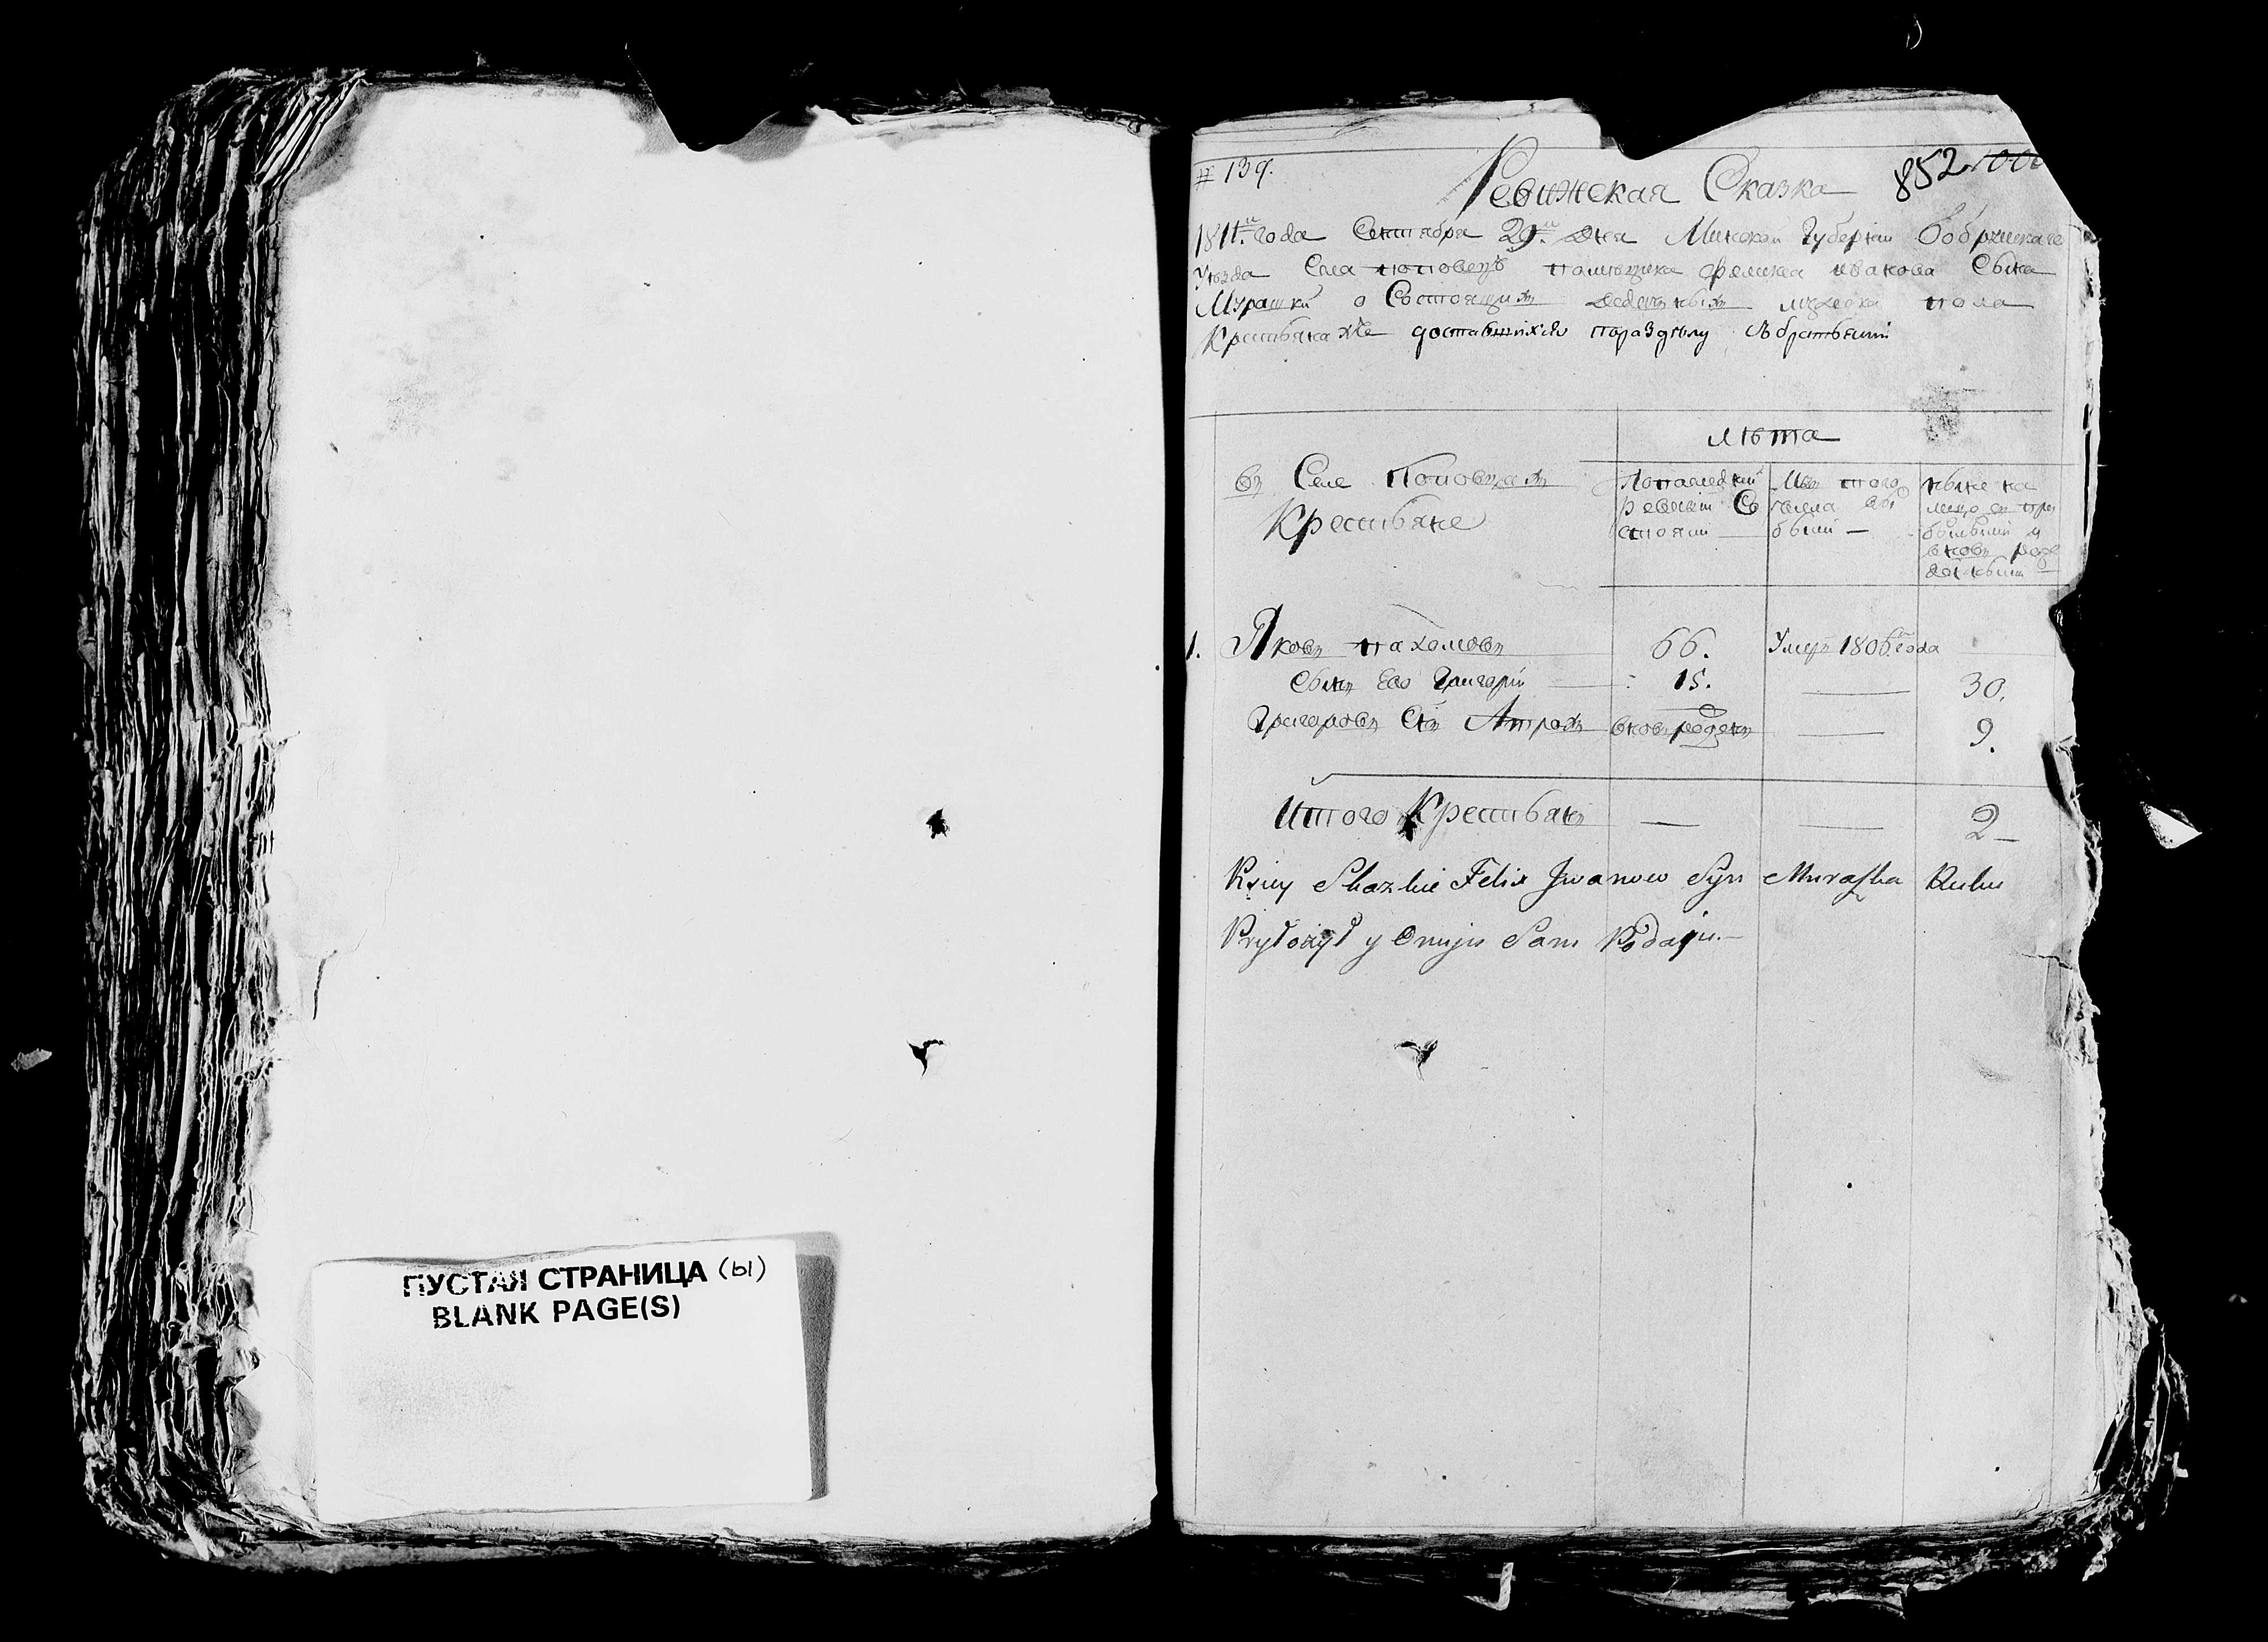 ПУСТАЯ СТРАНИЦА (ы)
BLANK PAGE(S)
# 139.
852
Ревижская Сказка
1811го года Сентября 29го Дня Минской Губернии Бобруйскаго
Уезда Села поповецъ помѣщика Феликса иванова Сына
Мурашки о Состоящихъ мужеска пола
Крестьянахже доставшихся поразделу събратьями
лѣта
Въ Селе Поповцахъ
Крестьяне
Попоследней ревизии Состояли
Изъ того числа выбыли —
ныне на лицо с прибылыми и вновь рожденными
1. Яковъ пахомовъ 66. Умеръ 1806го года
Сынъ Его Григорій 15. — 30.
Григоровъ Снъ Атрохъ вновь рожденъ — 9.
Итого Крестьянъ — — 2
K siey Skazkie Felix Jwanow Syn Muraszka Ruku
Pryłożył y Onuju Sam Podaju.